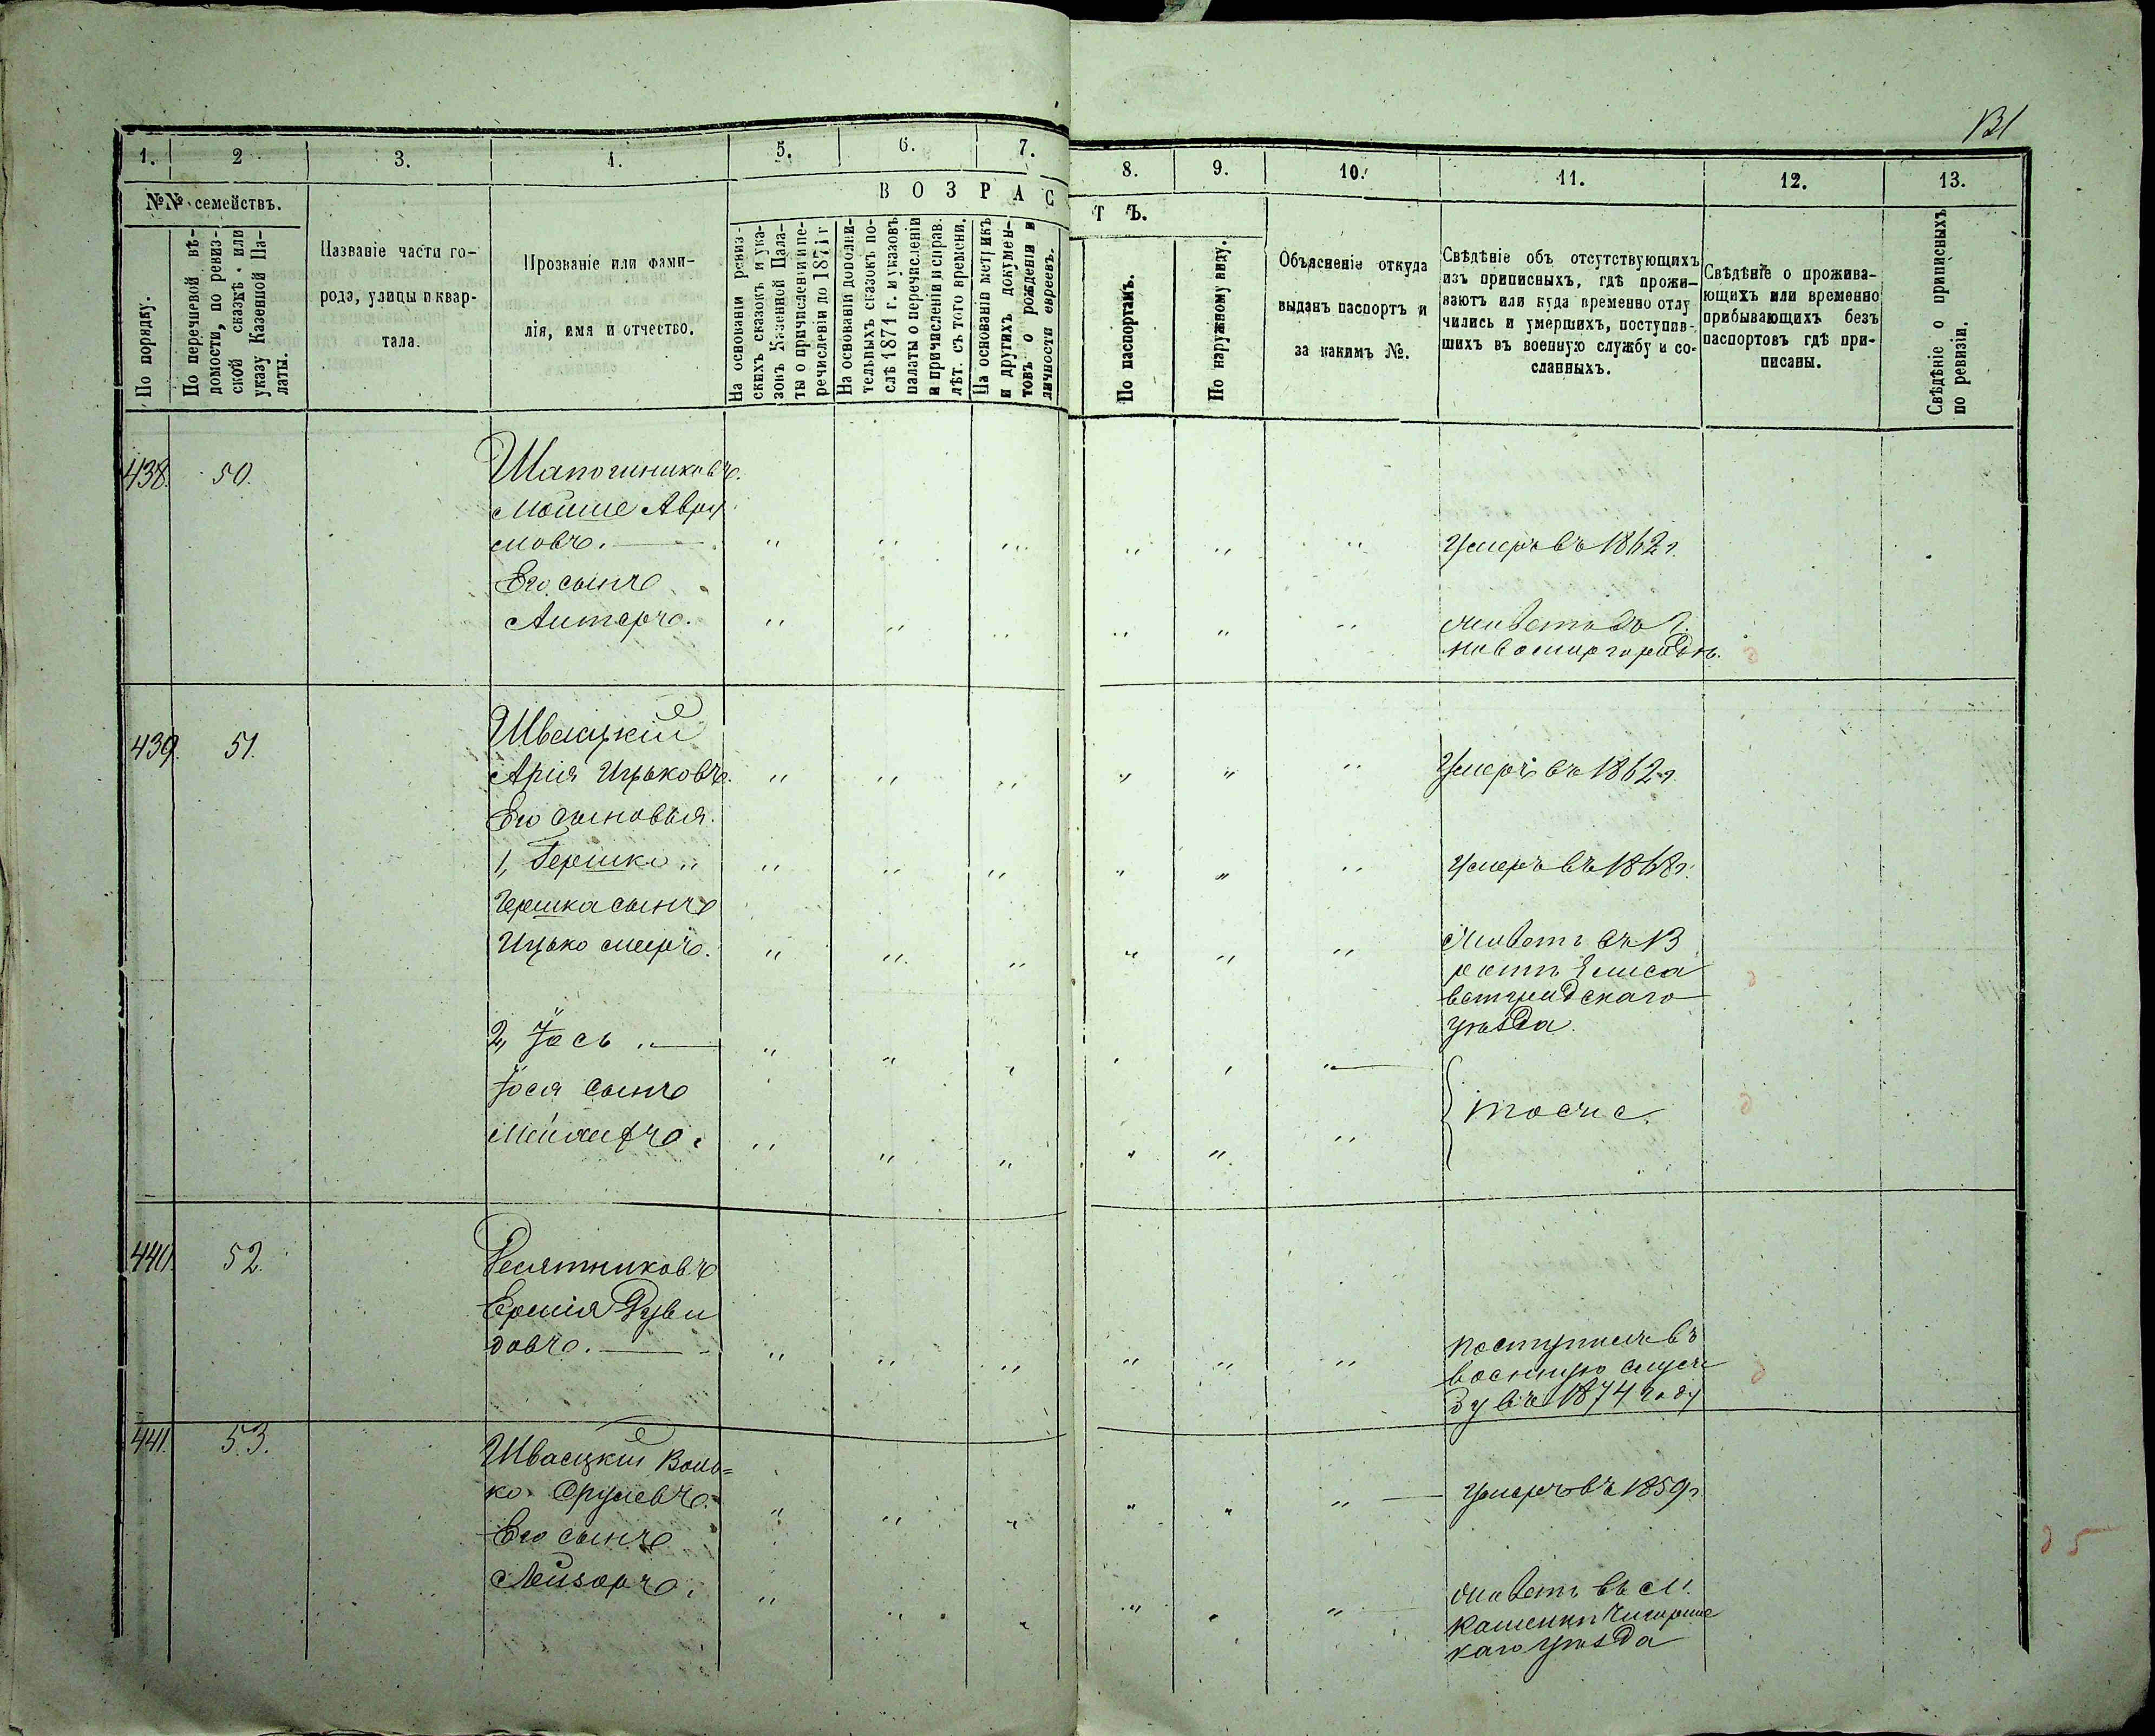 131
1. 2 3. 4. 5. 6. 7. 8. 9. 10. 11. 12. 13.
№№ семействъ.
По порядку.
По перечневой вѣ-
домости, по ревиз-
ской сказкѣ или
указу Казенной Па-
латы.
Названіе части го-
рода, улицы и квар-
тала.
Прозваніе или фами-
лія, имя и отчество.
ВОЗРАСТЪ.
На основаніи ревиз-
скихъ сказокъ и ука-
зовъ Казенной Пала-
ты о причисленіи и пе-
речисленіи до 1871 г
На основаніи дополни-
тельныхъ сказокъ по-
слѣ 1871 г. и указовъ
палаты о перечисленіи
и причисленіи и справ.
лѣт. съ того времени.
На основаніи метрикъ
и другихъ докумен-
товъ о рожденіи и
личности евреевъ.
По паспортамъ.
По наружному виду.
Объясненіе откуда
выданъ паспортъ и
за какимъ №.
Свѣдѣніе объ отсутствующихъ
изъ приписныхъ, гдѣ прожи-
ваютъ или куда временно отлу
чились и умершихъ, поступив-
шихъ въ военную службу и со-
сланныхъ.
Свѣдѣніе о прожива-
ющихъ или временно
прибывающихъ безъ
паспортовъ гдѣ при-
писаны.
Свѣдѣніе о приписныхъ
по ревизіи.
438. 50.
Шапошниковъ.
Мойше Авру
мовъ. Умеръ въ 1862 г.
Его сынъ
Антеръ. Живетъ въ г.
Новомиргородѣ.
439. 51.
Швацкій
Арія Ицьковъ. Умеръ въ 1862 г.
Его сыновья.
1, Гершко Умеръ въ 1868 г.
Гершка сынъ
Ицько Мееръ. Живетъ въ 13
ротѣ Елиса
ветградскаго
уѣзда.
2, Іось
Іося сынъ тоже.
440. 52.
Десятниковъ
довъ. поступилъ въ
военную служ
бу въ 1874 году
441. 53.
Швацкій Воль=
ко Срулевъ. умеръ въ 1859 г.
Его сынъ
Лейзоръ. живетъ въ м.
Каменкѣ Чигиринс
каго уѣзда